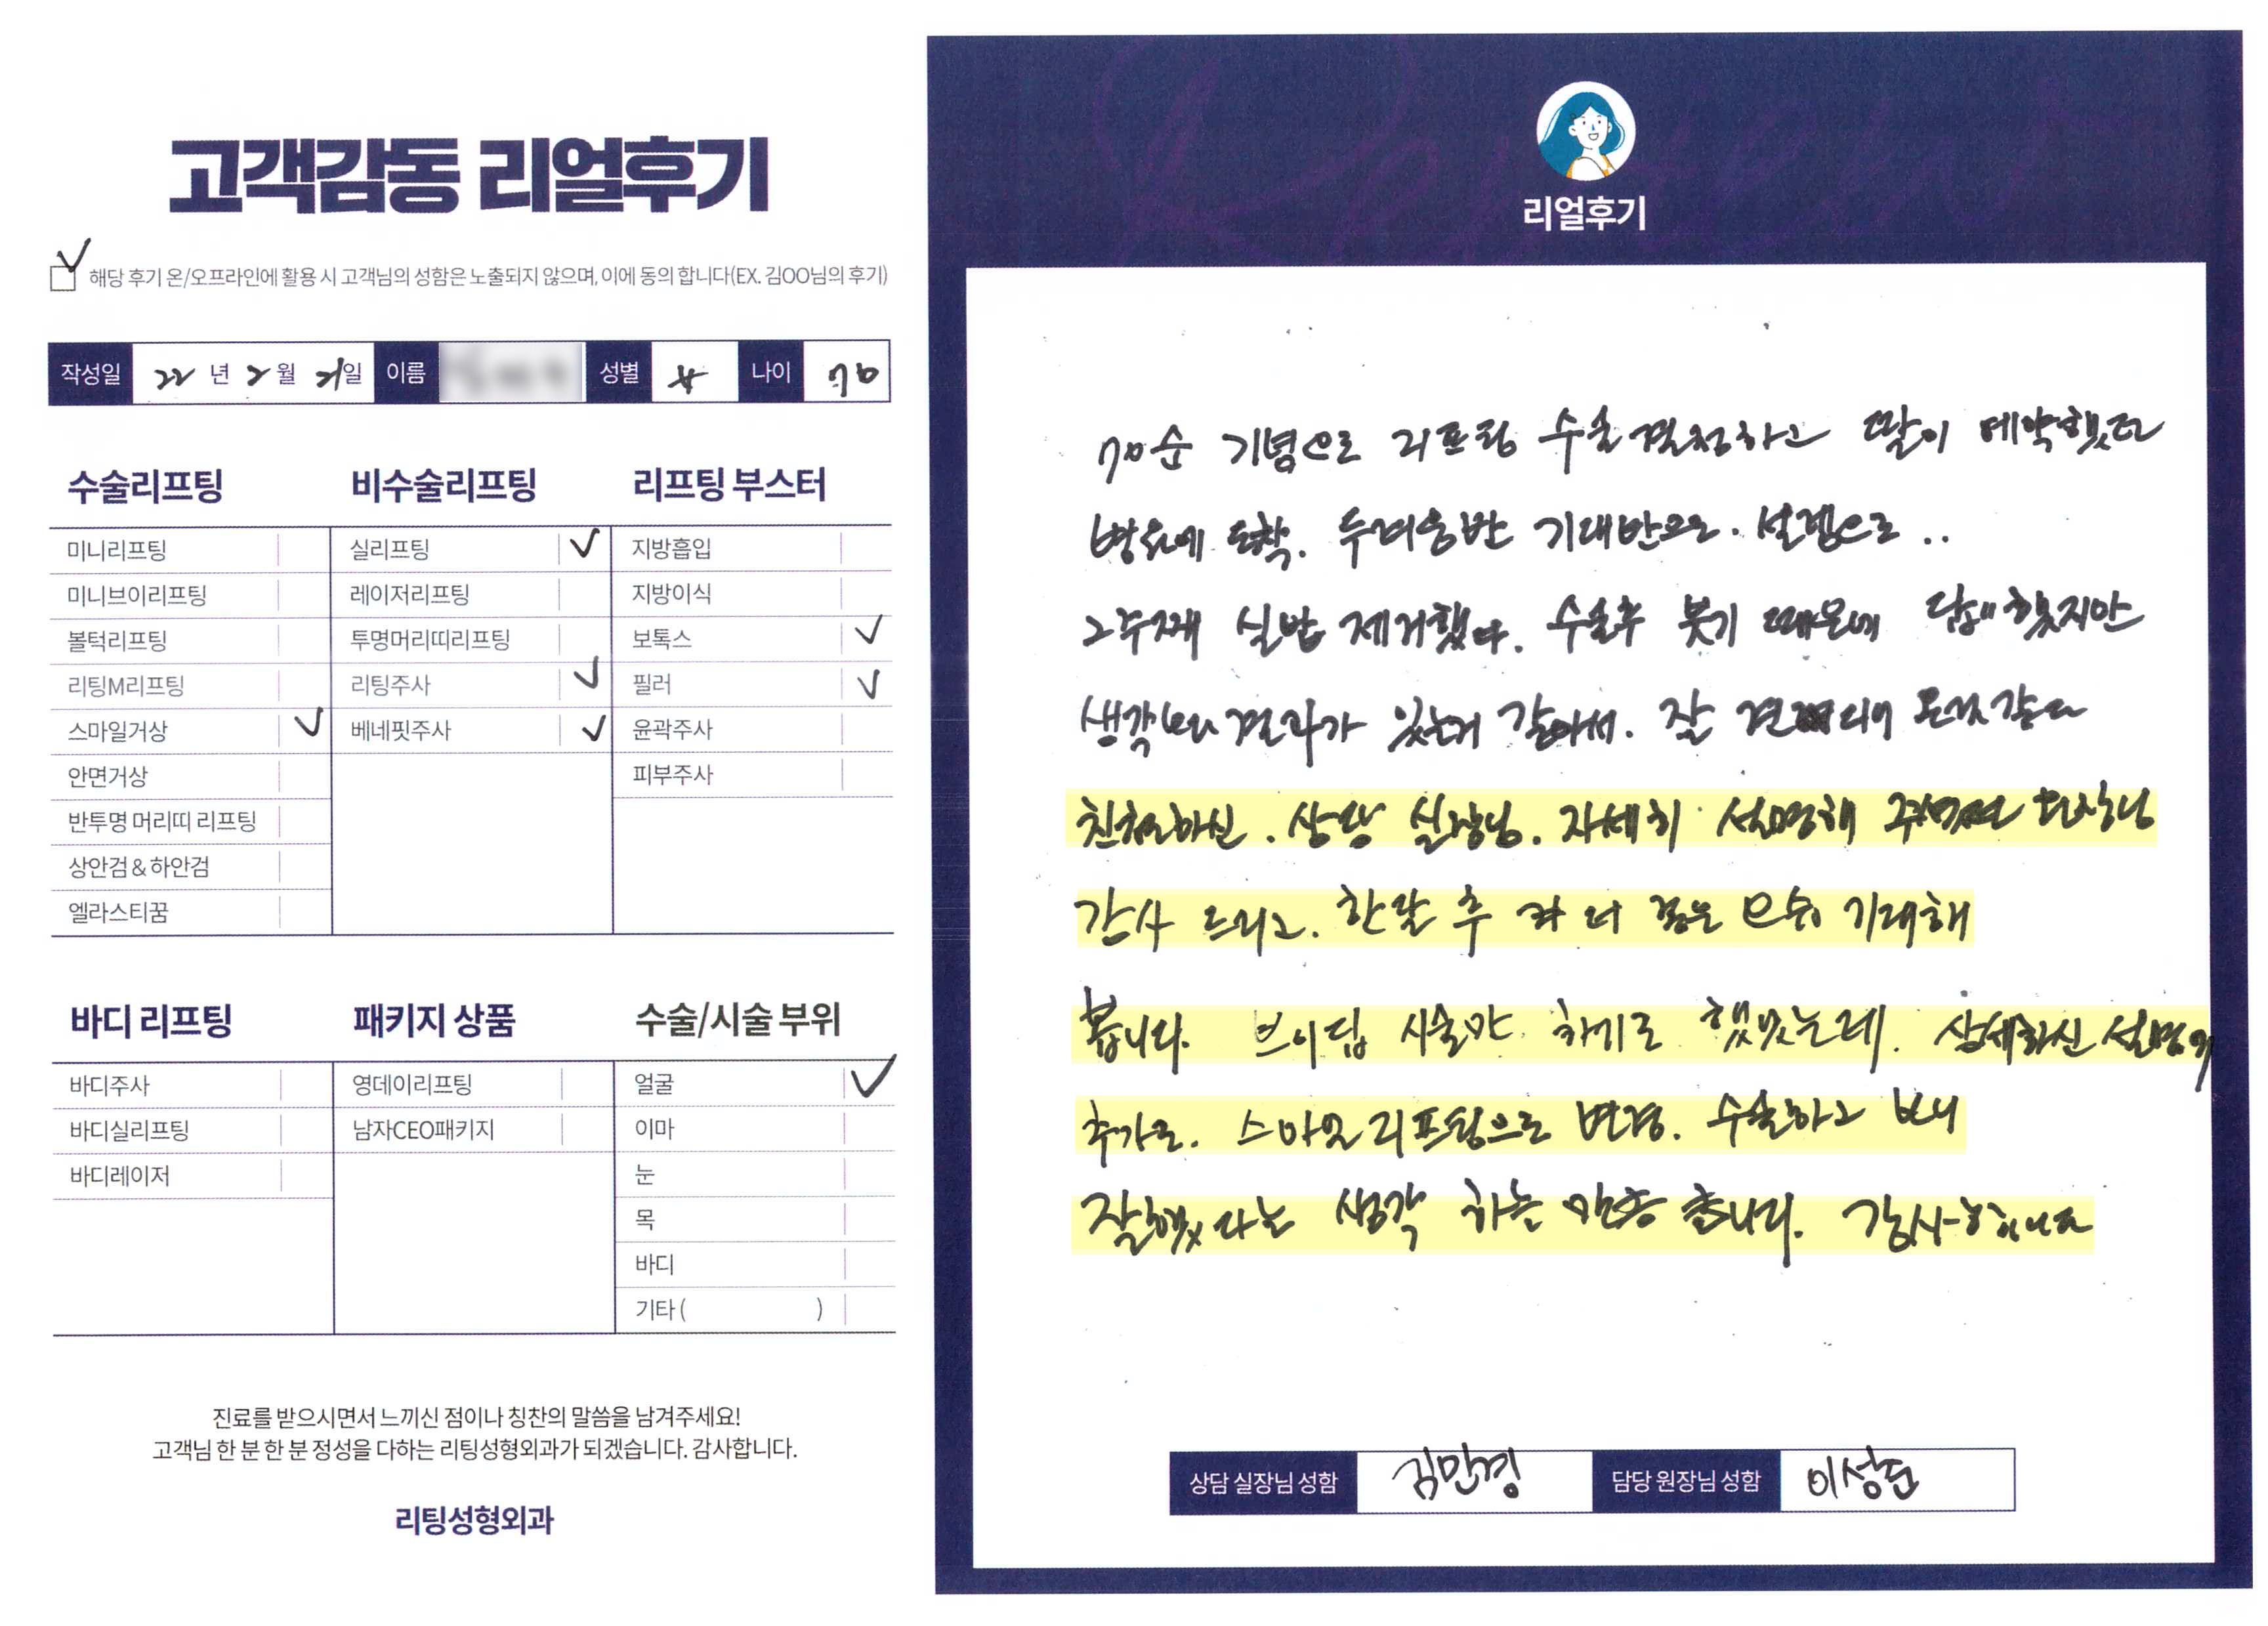 고객감동 리얼후기
해당 후기 온/오프라인에 활용 시 고객님의 성함은 노출되지 않으며, 이에 동의 합니다(EX. 김OO님의 후기)
작성일 22 년 2 월 21일 이름 성별 나이 70
수술리프팅
미니리프팅
미니브이리프팅
볼턱리프팅
리팅M리프팅
스마일거상
안면거상
반투명 머리띠 리프팅
상안검 & 하안검
엘라스티꿈
비수술리프팅
실리프팅
레이저리프팅
투명머리띠리프팅
리팅주사
베네핏주사
리프팅 부스터
지방흡입
지방이식
보톡스
필러
윤곽주사
피부주사
바디 리프팅
바디주사
바디실리프팅
바디레이저
패키지 상품
영데이리프팅
남자CEO패키지
수술/시술 부위
얼굴
이마
눈
목
바디
기타 ( )
진료를 받으시면서 느끼신 점이나 칭찬의 말씀을 남겨주세요!
고객님 한 분 한 분 정성을 다하는 리팅성형외과가 되겠습니다. 감사합니다.
리팅성형외과
리얼후기
70순 기념으로 리프팅 수술결정하고 딸이 예약했던
병원에 도착. 두려움반 기대반으로. 설렘으로 ..
2주째 실밥 제거했다. 수술후 붓기 때문에 답답했지만
생각보다 결과가 있는거 같아서. 잘 견디어 온것같다
친절하신. 상담 실장님. 자세히 설명해 주셨던 원장님
감사 드리고. 한달 후 더 젊은 모습 기대해
봅니다. 브이딥 시술만 하기로 했었는데. 상세하신 설명에
추가로. 스마일리프팅으로 변경. 수술하고 보니
잘했다는 생각 하는 만족 합니다. 감사합니다
상담 실장님 성함 김민경 담당 원장님 성함